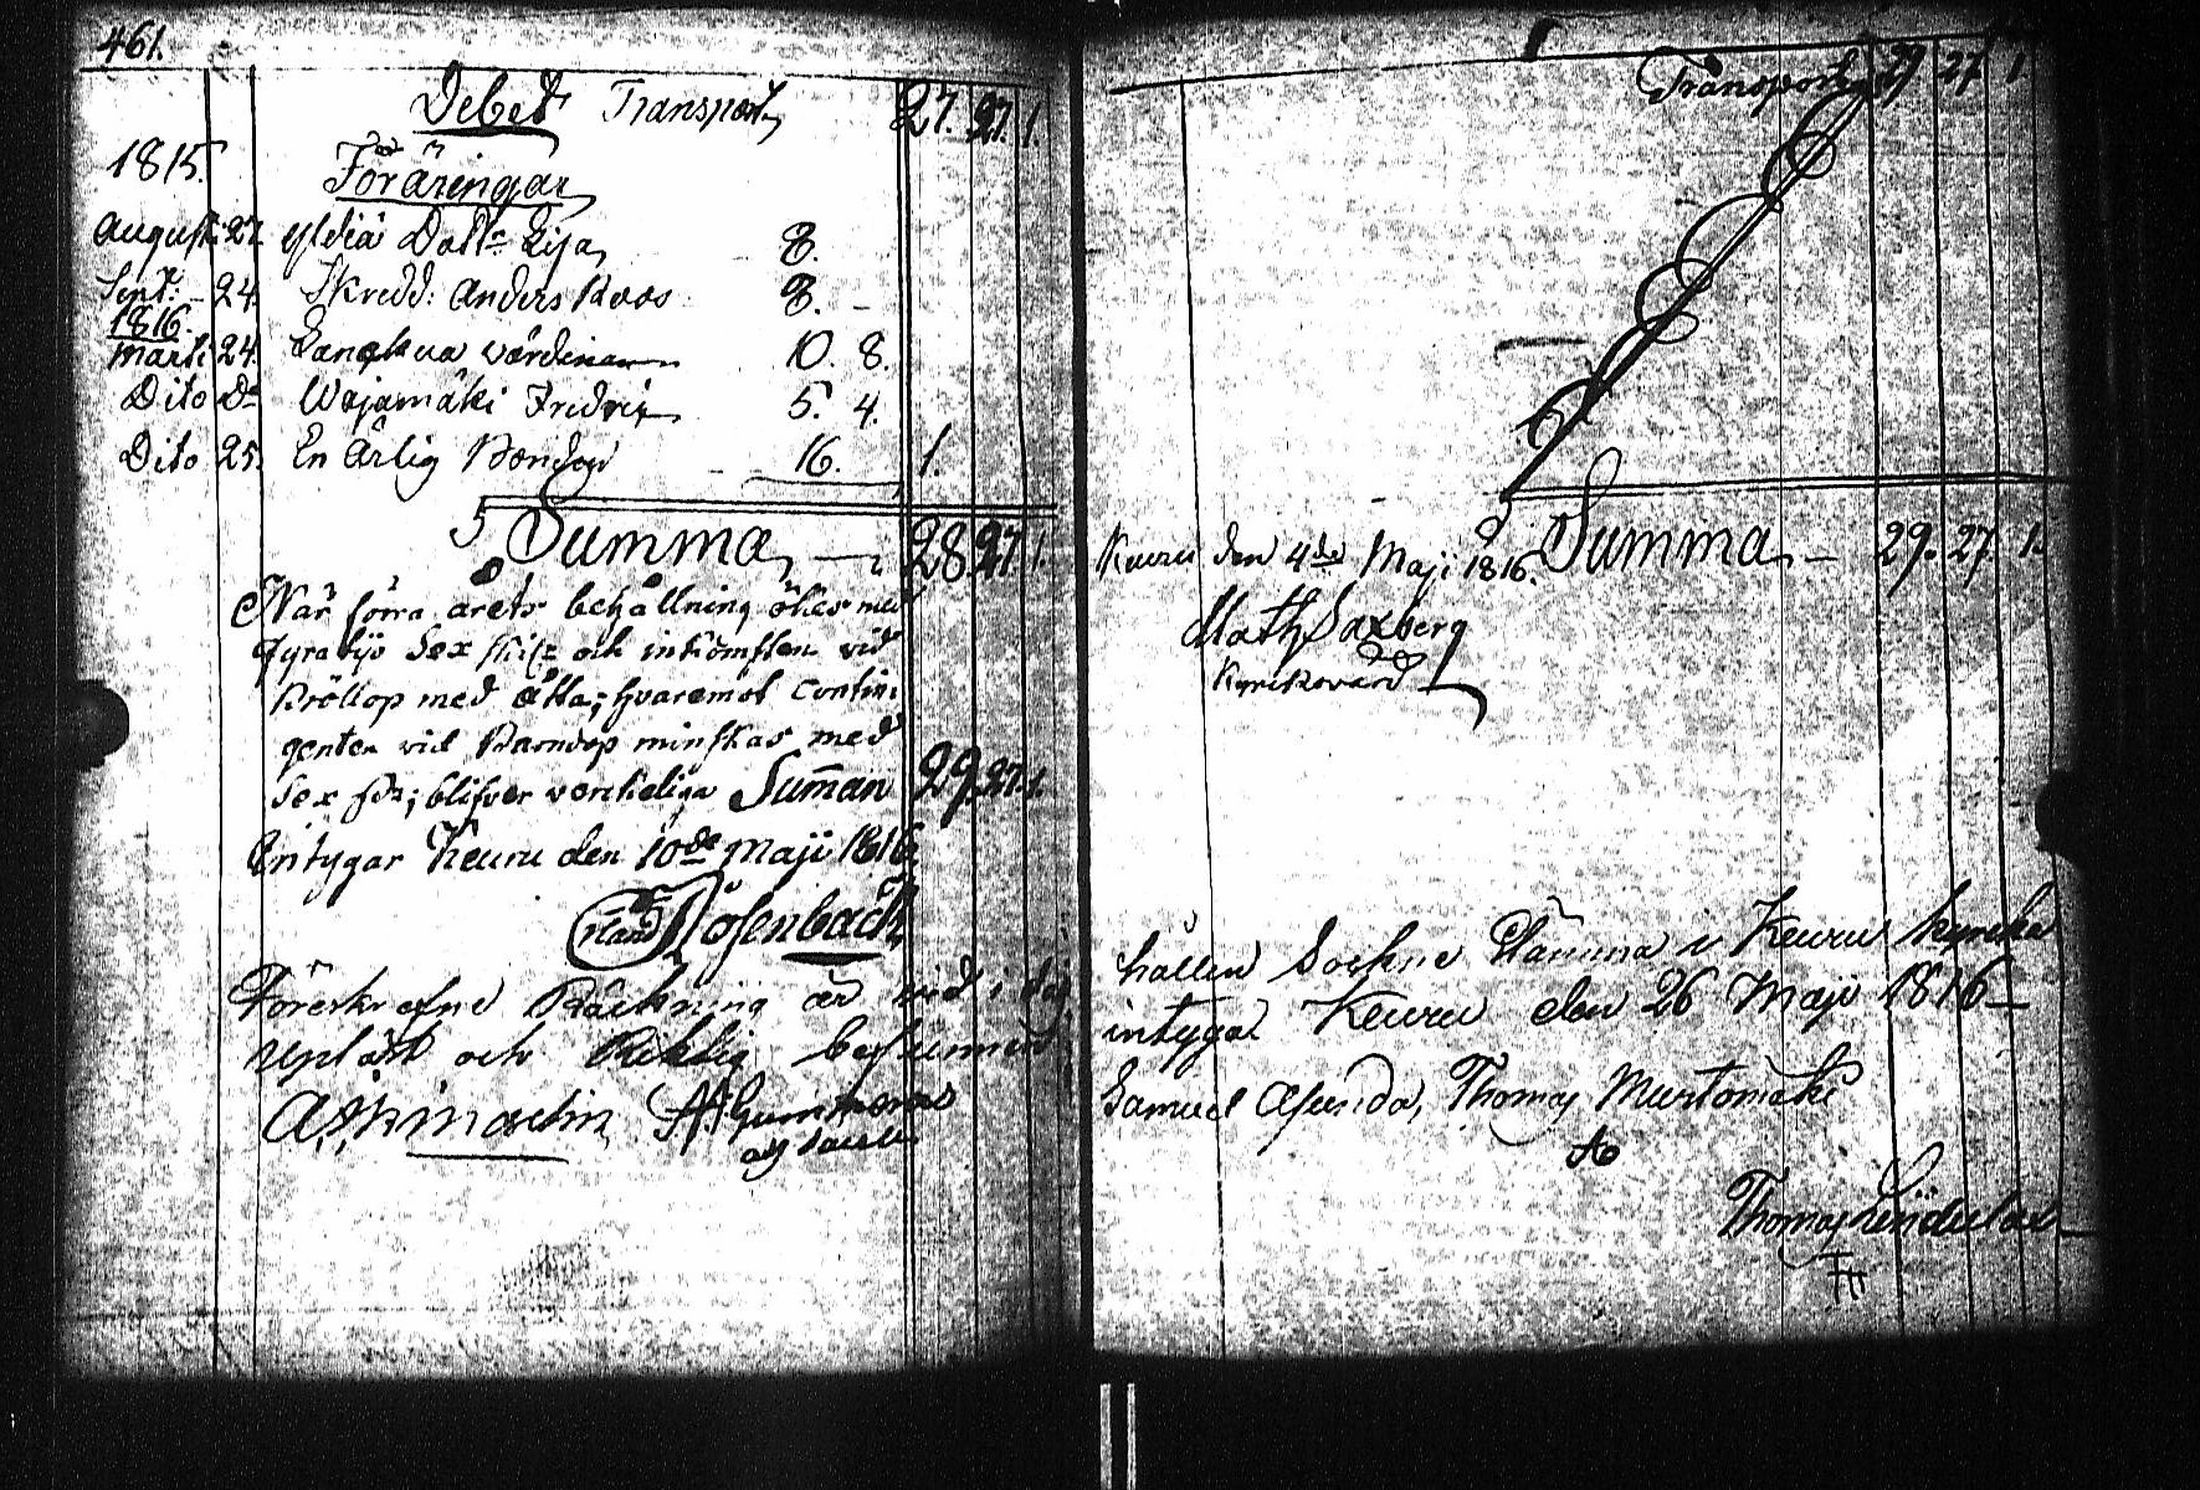 461.
Debet Transport 27. 27. 1.
1815. Föräringar
August. 27. Yldiä Dottr Lisa 8.
Sept: - 24. Skredd: Anders Roos 8. -
1816.
Martii 24. wärdinnan 10. 8.
Dito Do Wajamäki Fredric 5. 4.
Dito 25. En Ärlig Bonde 16. 1.
Summa 28. 27. 1.
När förra årets behållning ökes med
fyratijo Sex skil: och inkomsten vid
Bröllop med åtta; hvaremot contin-
genten vid Barndop minskas med
Sex sk; blifver verkeliga Summan 29. 27. 1.
Intygar Keuru den 10de Maji 1816.
Erland Rosenback
Föreskrefne Räckning är wid i dag
upläst och Riktig befunnen
Transport 29 27 1.
Keuru den 4de Maji 1816. Summa 29. 27. 1.
Math Saxberg
Kyrckovärd
hållen Sockne Stämma i Keuru kyrcka
intygar Keuru den 26 Maji 1816
Samuel Asunda, Thomas Murtomäki
Thomas